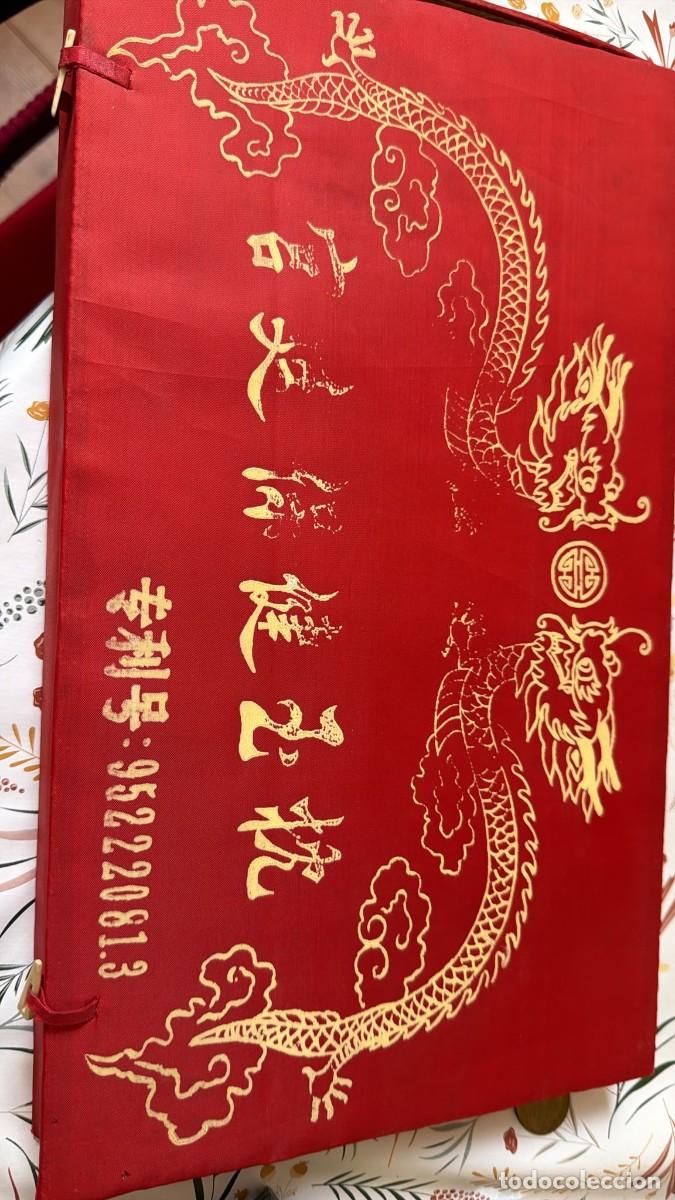 宫廷保健玉枕
专利号:95222081.3
todocoleccion